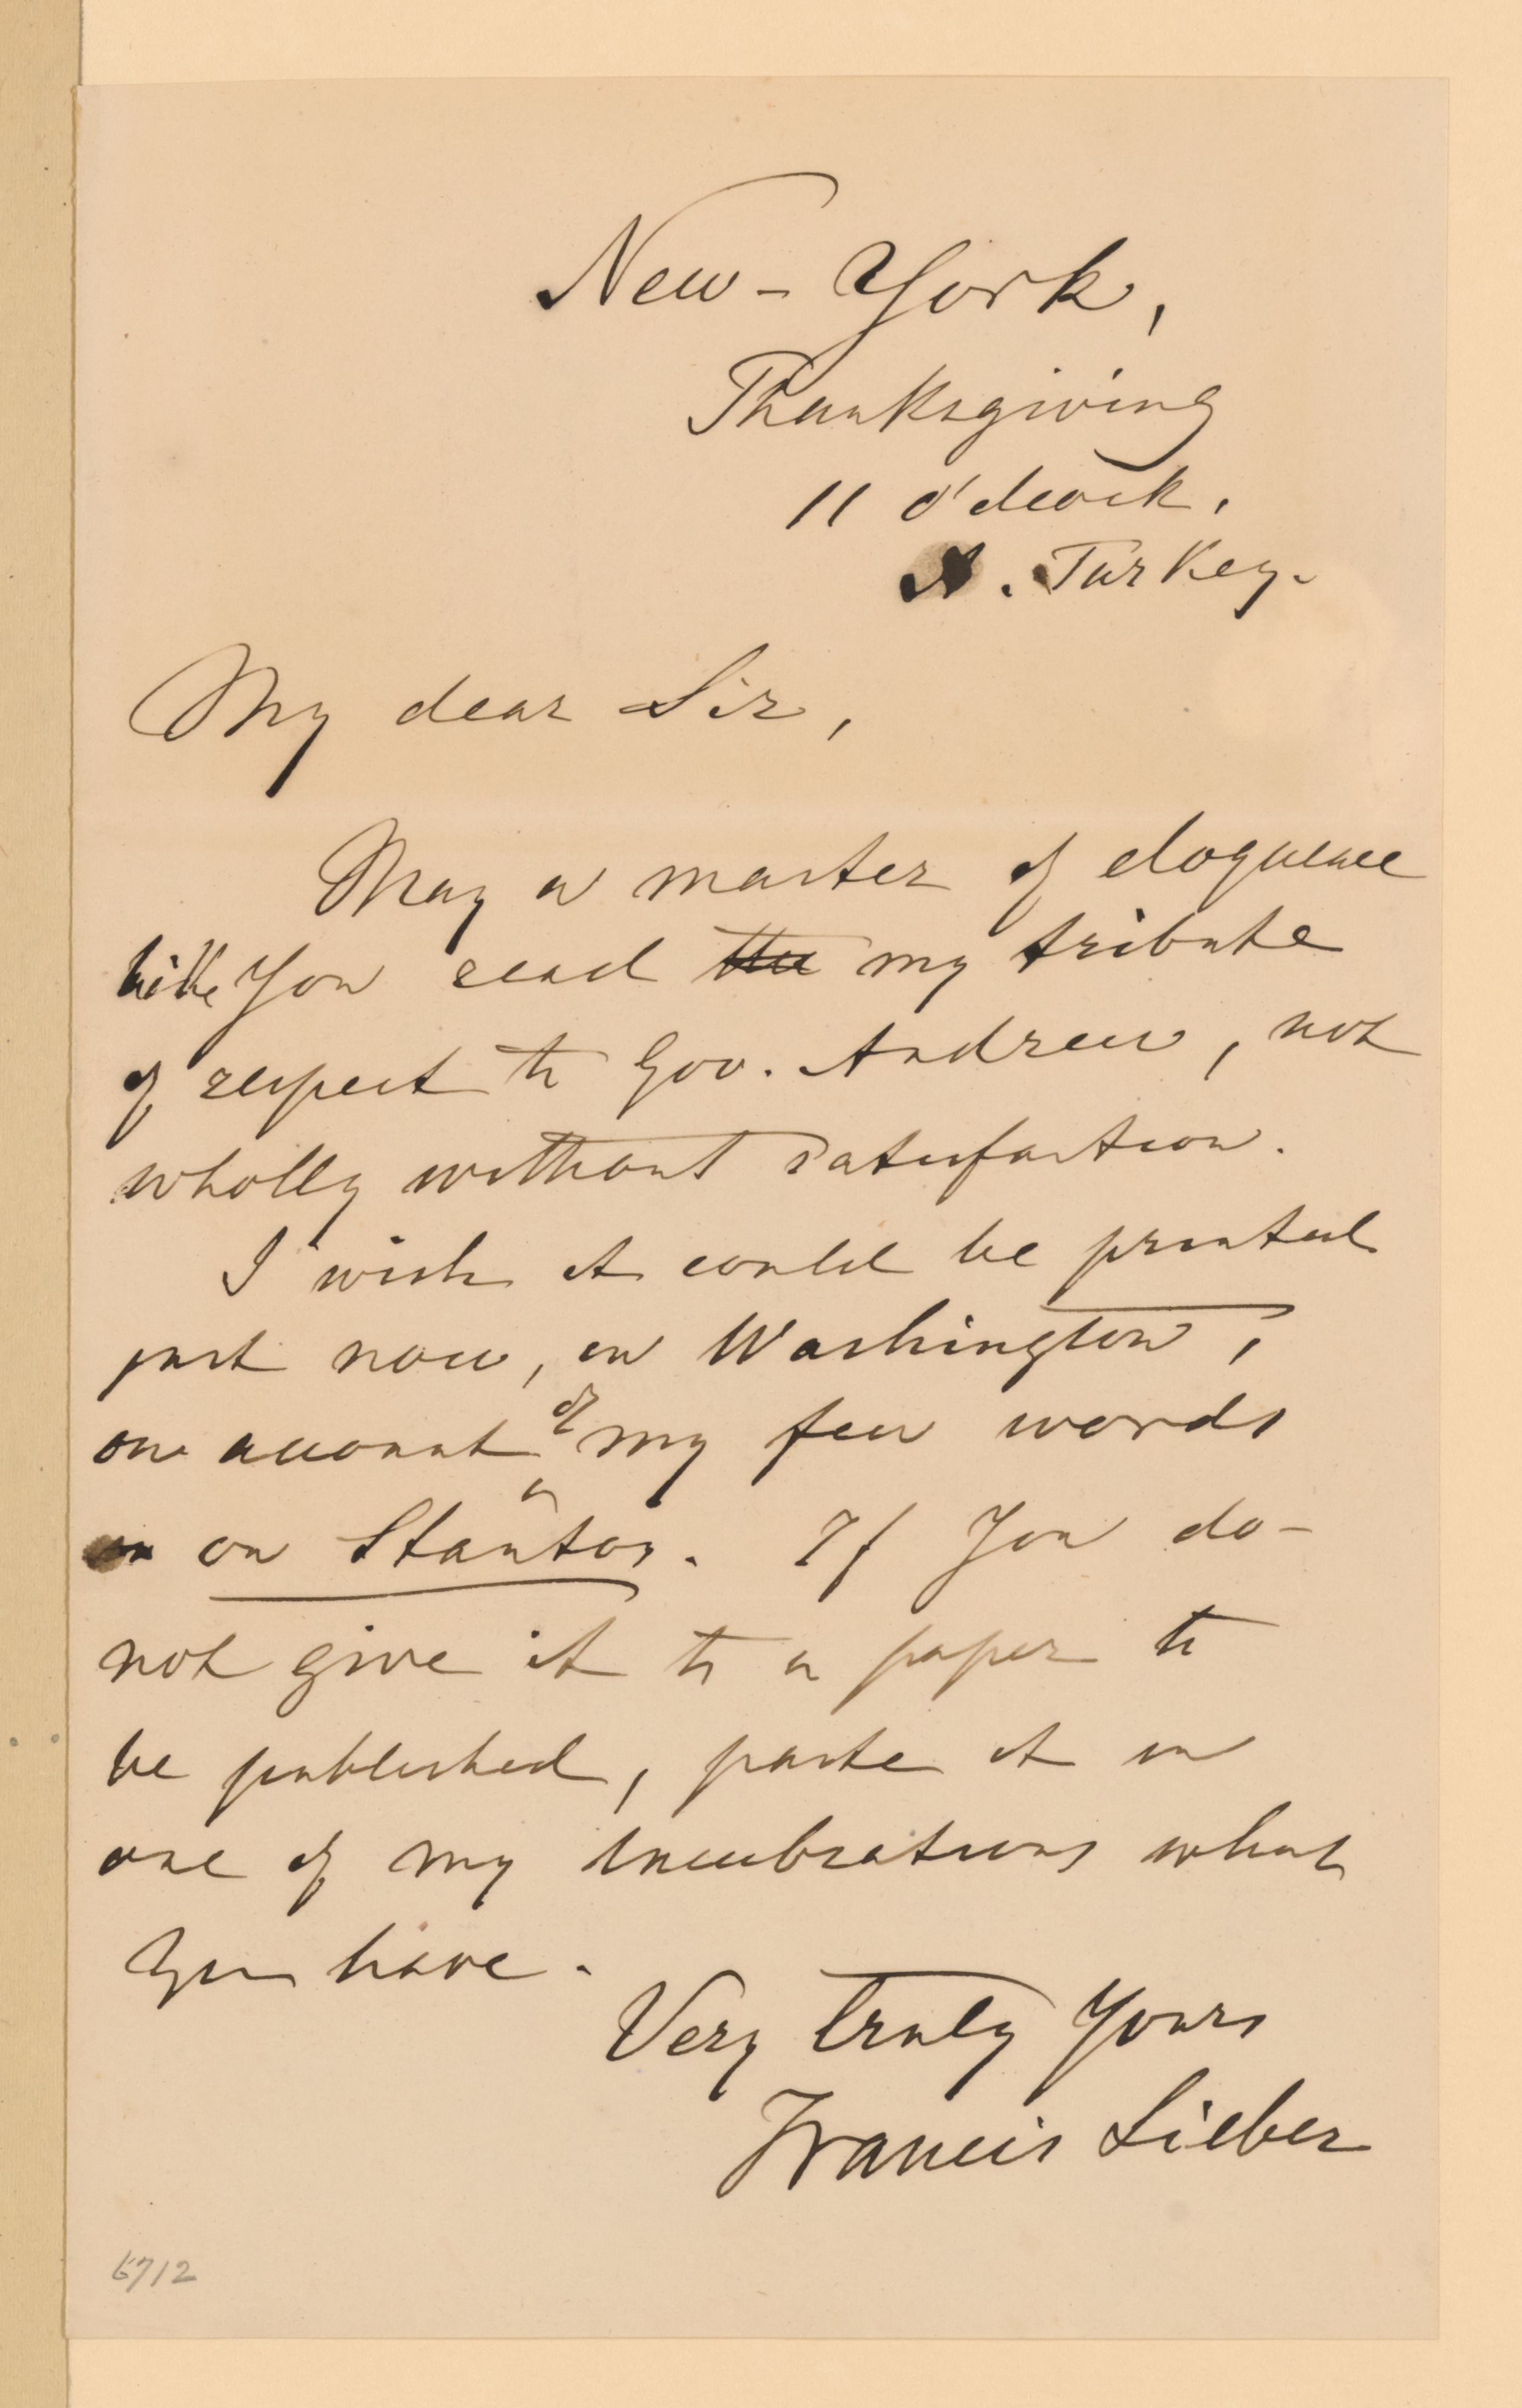 New-York,
Thanksgiving
11 o'clock.
A. Turkey.
My dear Sir,
May a master of eloquence
like You read the my tribute
of respect to Gov. Andrew, not
wholly without satisfaction.
I wish it could be printed
just now, in Washington,
on account of my few words
on Stanton. If You do-
not give it to a paper to
be published, paste it in
one of my lucubrations what
You have.
Very truly Yours
Francis Lieber
6712